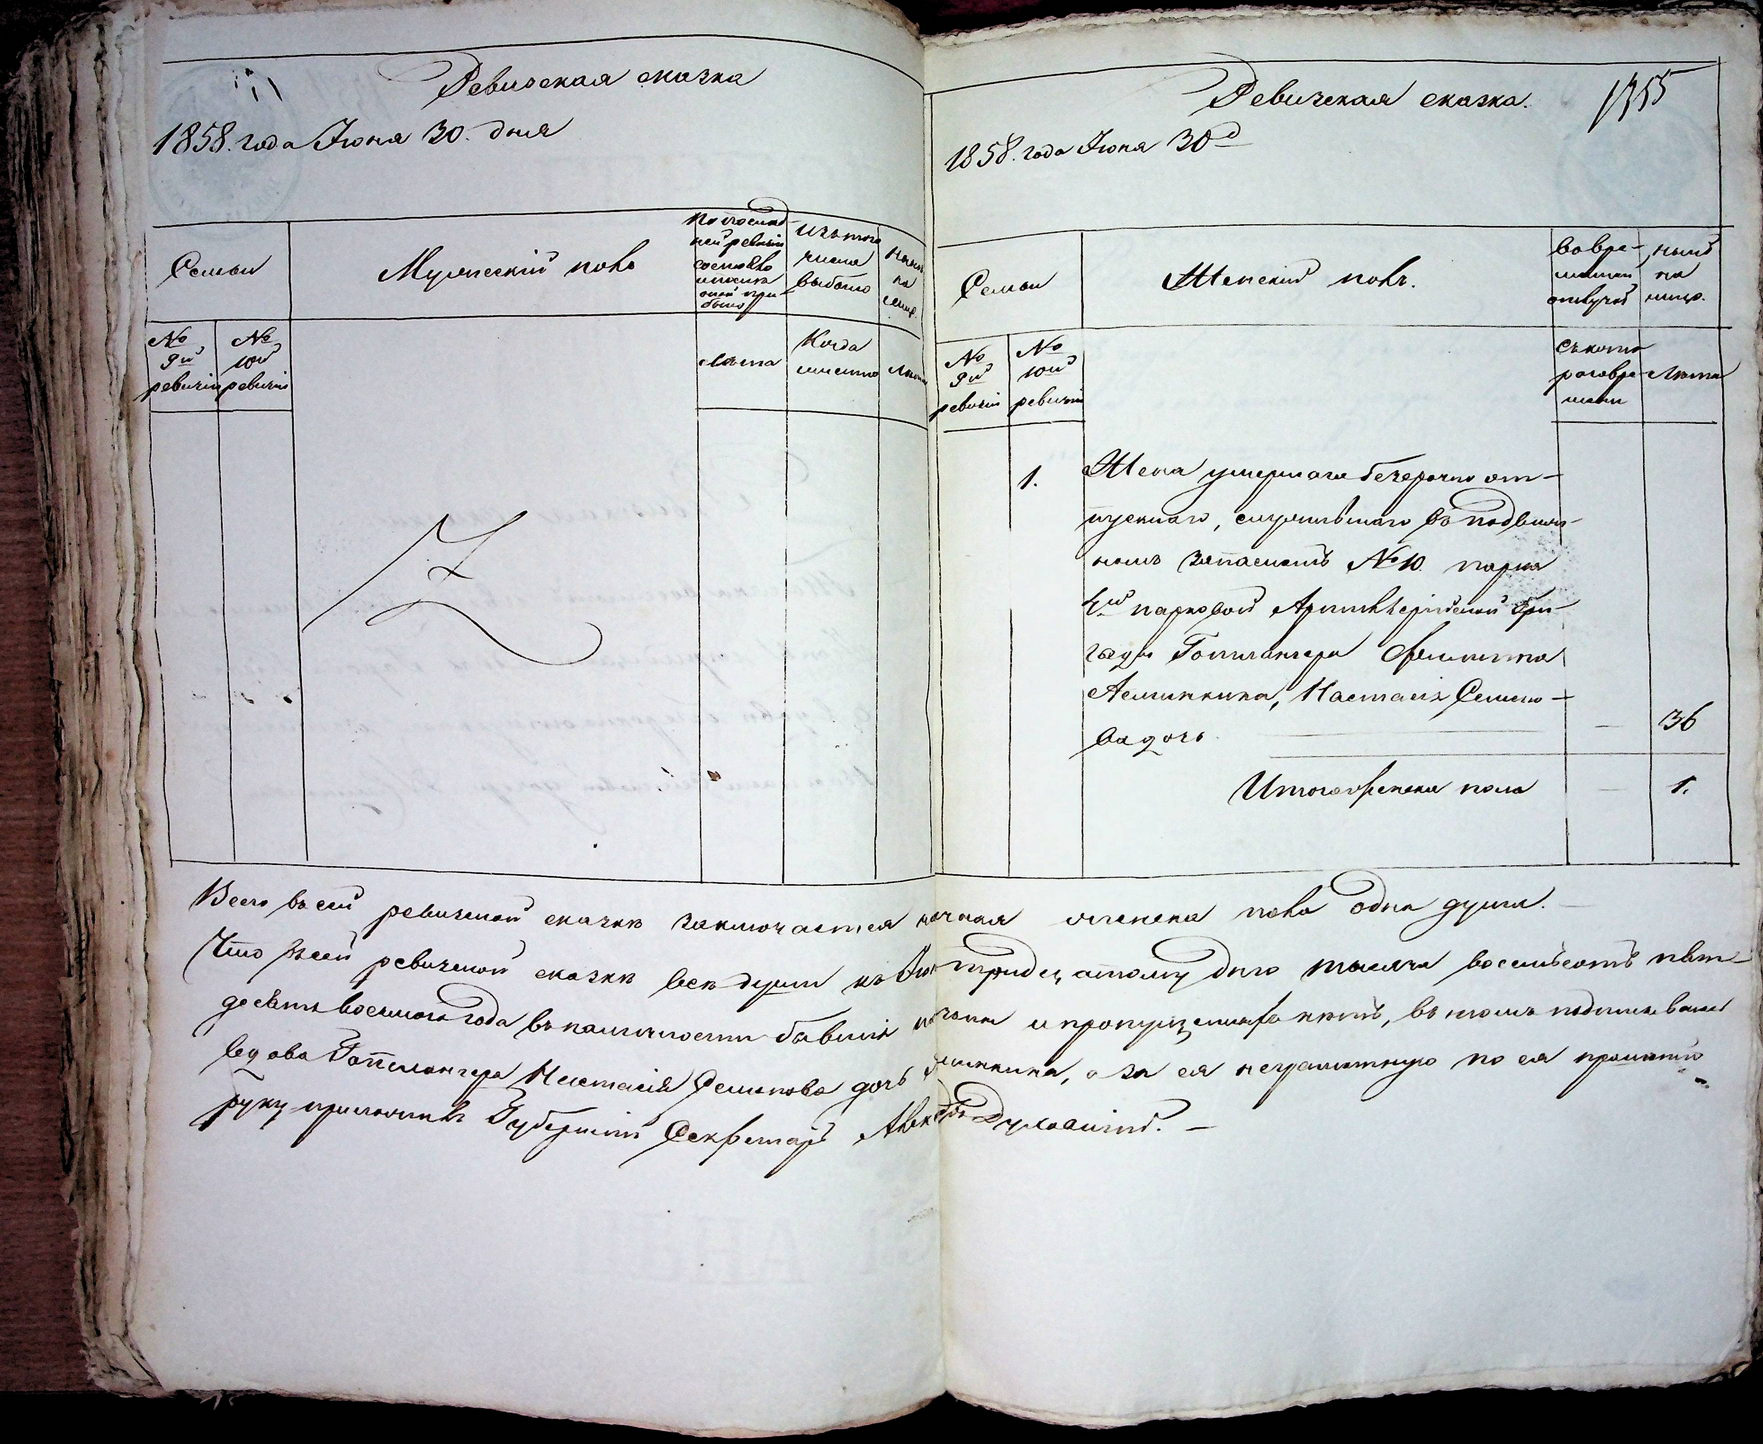 Ревизская сказка
1858. года Июня 30. дня
Семьи
Мужескій полъ
По послѣд-
ней ревизіи
состояло
и послѣ
оной при-
было
Изъ того
числа
выбыло
Нынѣ
на
лицо.
№
9й
ревизіи
№
10й
ревизіи
Лѣта
Когда
именно
Лѣта
Ревизская сказка.
1355
1858. года Июня 30д
Семьи
Женскій полъ.
Во вре-
менной
отлучкѣ
нынѣ
на
лицо.
№
9й
ревизіи
№
10й
ревизіи
Съ кото-
раго вре-
мени
Лѣта
1. Жена умершаго безсрочно от-
пускнаго, служившаго въ подвиж-
номъ запасномъ № 10. парка
4й парковой Артиллерійской бри-
гады Гонтлангера Филиппа
Настасія Семено-
ва дочь — 36
Итого женска пола — 1.
Всего въ сей ревизской сказкѣ заключается женска пола одна душа. —
Что въ сей ревизской сказкѣ всѣ души къ тридцатому дню тысяча восемьсотъ пять-
десятъ восьмаго года въ наличности бывшія и пропущенныхъ нѣтъ, въ томъ подписываюсь
вдова Гонтлангера Настасія Семенова дочь а за ея неграмотную по ея прошенію
руку приложилъ Губернскій Секретарь —